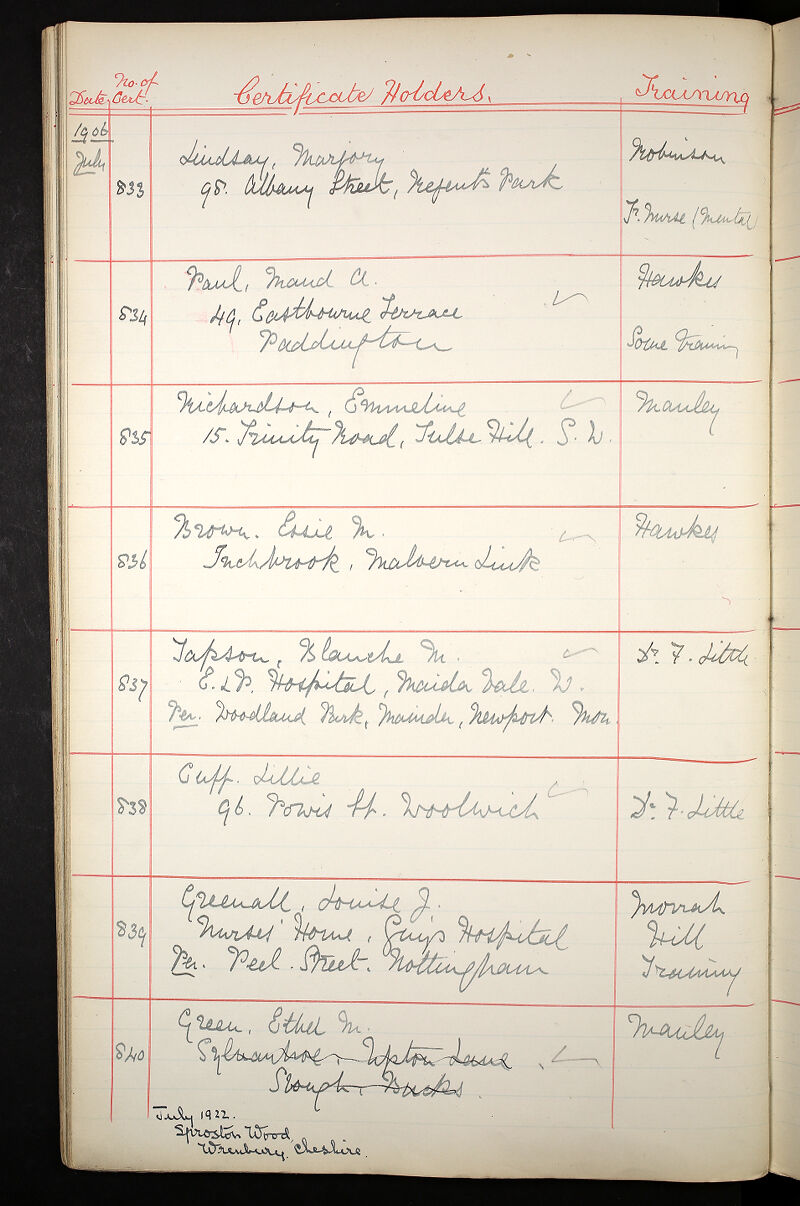 Date. No. of Cert. Certificate Holders. Training
1906
July
833 Lindsay, Marjory Robinson
98. Albany Street, Regent's Park
Tr. Nurse (Mental)
834 Paul, Maud A. Hawkes
49, Eastbourne Terrace
Paddington Some training
835 Richardson, Emmeline Manley
15. Trinity Road, Tulse Hill. S. W.
836 Brown. Essie M. Hawkes
Inchbrook, Malvern Link
837 Tapson, Blanche M. Dr. F. Little
E. & P. Hospital, Maida Vale. W.
Per. Woodland Park, Maindee, Newport. Mon.
838 Cuff. Lillie
96. Powis St. Woolwich Dr. F. Little
839 Greenall, Louise J. Morrah
Nurses' Home, Guy's Hospital Hill
Per. Peel. Street. Nottingham Training
840 Green, Ethel M. Manley
Upton Lane
Slough, Bucks.
July 1922.
Sproston Wood,
Wrenbury. Cheshire.